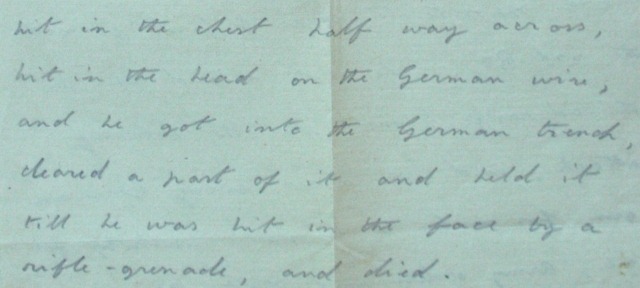 hit in the chest half way across,
hit in the head on the German wire,
and he got into the German trench,
cleared a part of it and held it
till he was hit in the face by a
rifle-grenade, and died.